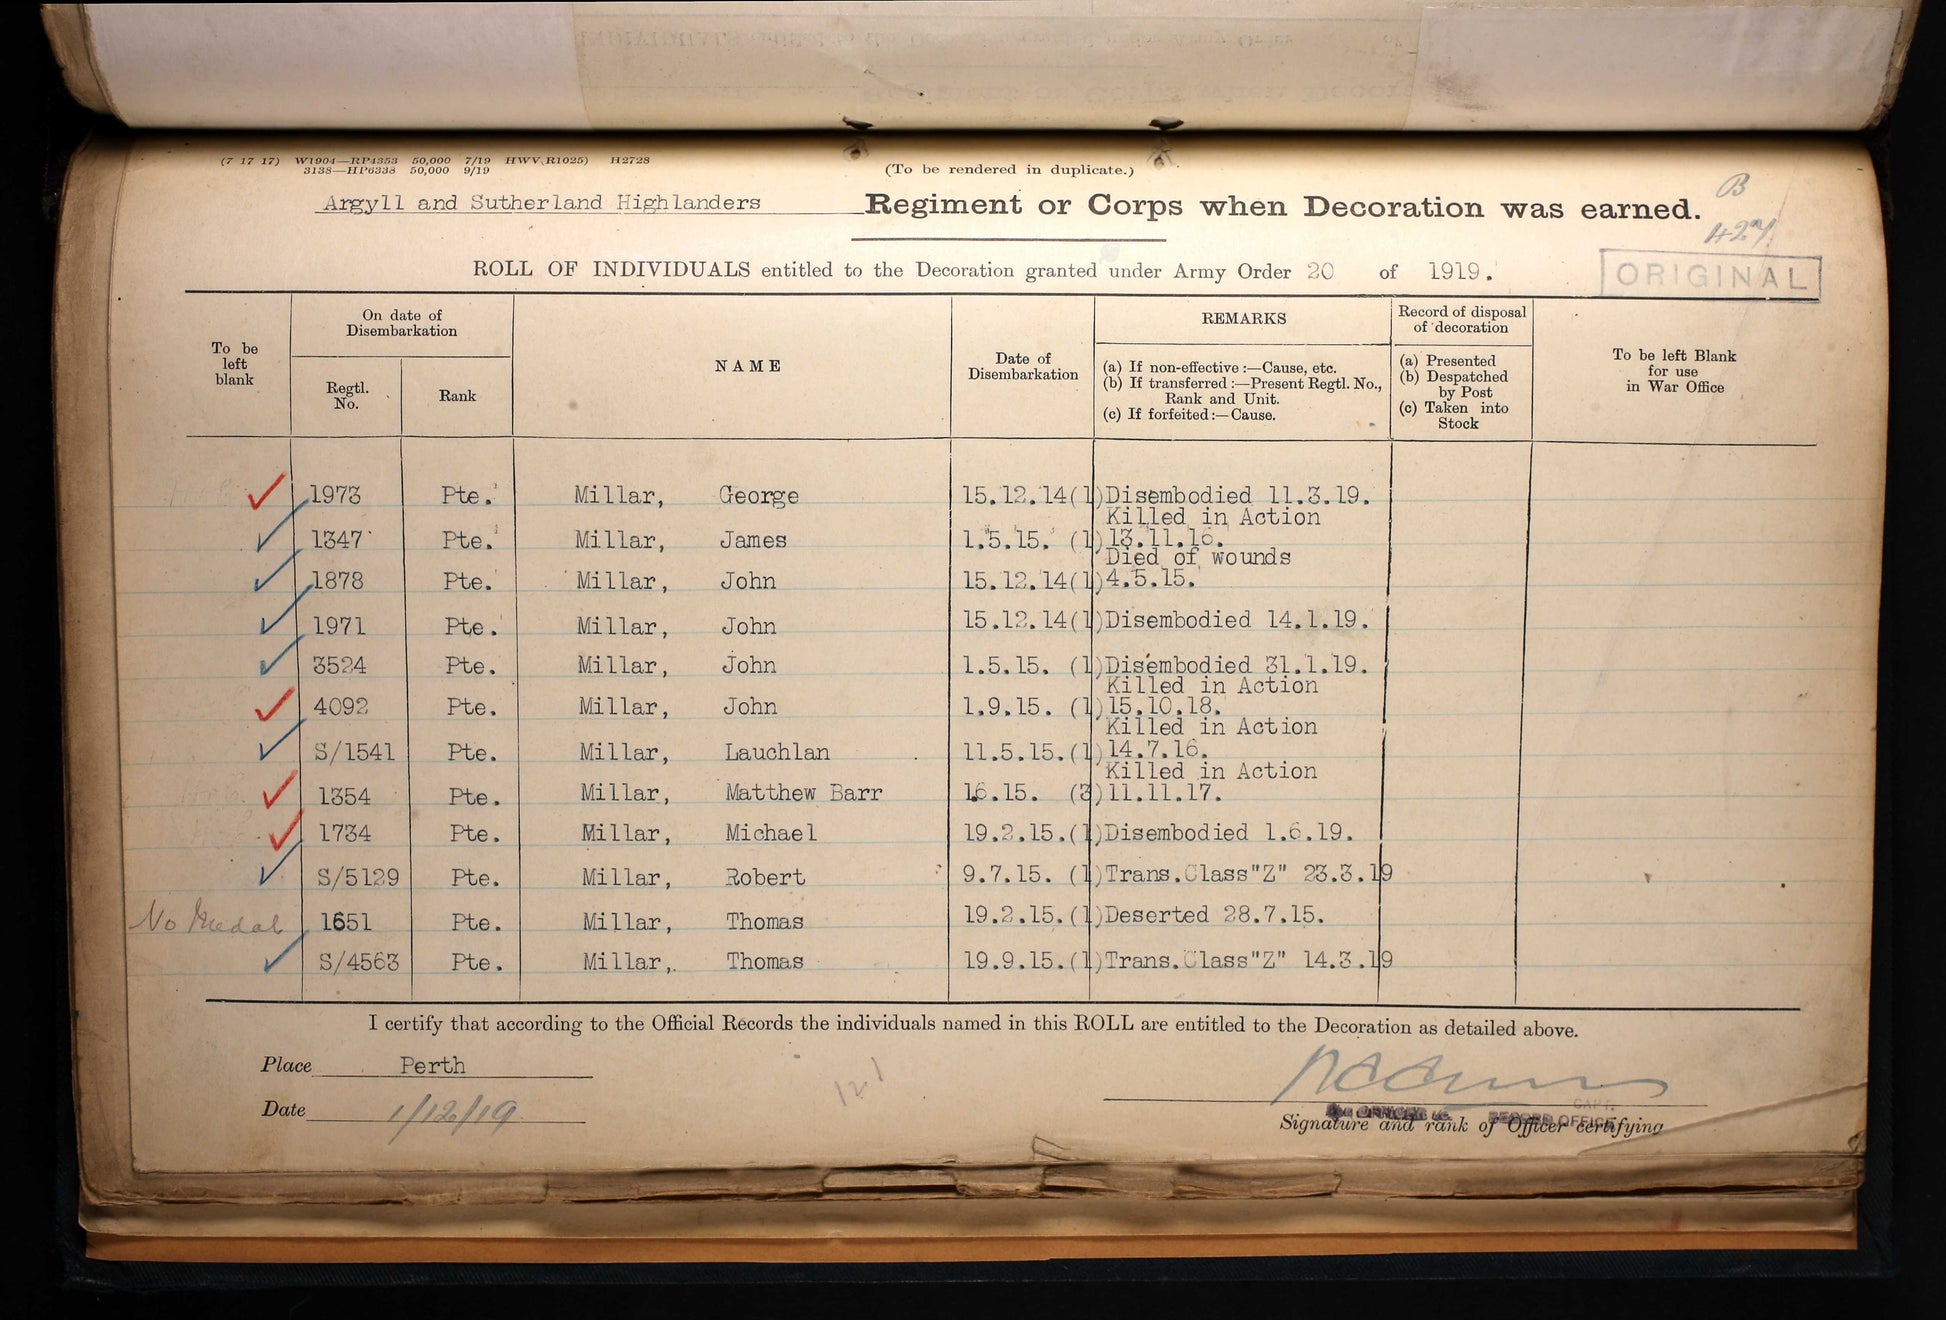 (7 17 17) W1904—RP4353 50,000 7/19 HWV(R1025) H2728
3138—HP6338 50,000 9/19
(To be rendered in duplicate.)
B
Argyll and Sutherland Highlanders Regiment or Corps when Decoration was earned.
427
ROLL OF INDIVIDUALS entitled to the Decoration granted under Army Order 20 of 1919.
ORIGINAL
To be left blank
On date of Disembarkation
Regtl. No.
Rank
NAME
Date of Disembarkation
REMARKS
(a) If non-effective :—Cause, etc.
(b) If transferred :—Present Regtl. No., Rank and Unit.
(c) If forfeited :—Cause.
Record of disposal of decoration
(a) Presented
(b) Despatched by Post
(c) Taken into Stock
To be left Blank for use in War Office
1973 Pte. Millar, George 15.12.14(1) Disembodied 11.3.19.
Killed in Action
1347 Pte. Millar, James 1.5.15. (1) 13.11.16.
Died of wounds
1878 Pte. Millar, John 15.12.14(1) 4.5.15.
1971 Pte. Millar, John 15.12.14(1) Disembodied 14.1.19.
3524 Pte. Millar, John 1.5.15. (1) Disembodied 31.1.19.
Killed in Action
4092 Pte. Millar, John 1.9.15. (1) 15.10.18.
Killed in Action
S/1541 Pte. Millar, Lauchlan 11.5.15.(1) 14.7.16.
Killed in Action
1354 Pte. Millar, Matthew Barr 1.6.15. (3) 11.11.17.
1734 Pte. Millar, Michael 19.2.15.(1) Disembodied 1.6.19.
S/5129 Pte. Millar, Robert 9.7.15. (1) Trans.Class"Z" 23.3.19
No Medal 1651 Pte. Millar, Thomas 19.2.15.(1) Deserted 28.7.15.
S/4563 Pte. Millar, Thomas 19.9.15.(1) Trans.Class"Z" 14.3.19
I certify that according to the Official Records the individuals named in this ROLL are entitled to the Decoration as detailed above.
Place Perth
Date 1/12/19
121
CAPT.
RECORD OFFICE
Signature and rank of Officer certifying